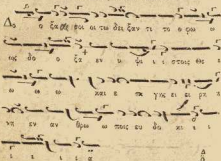 Δο ο ξα σοι οι τω δει ξαν τι το φω ω
ως δο ο ξα εν υ ψι ι ι στοις θε ε
ω ω ω και ε πι γης ει ει ρη
εν αν θρω ω ποις ευ δο κι ι ι
ι ι ι ι α